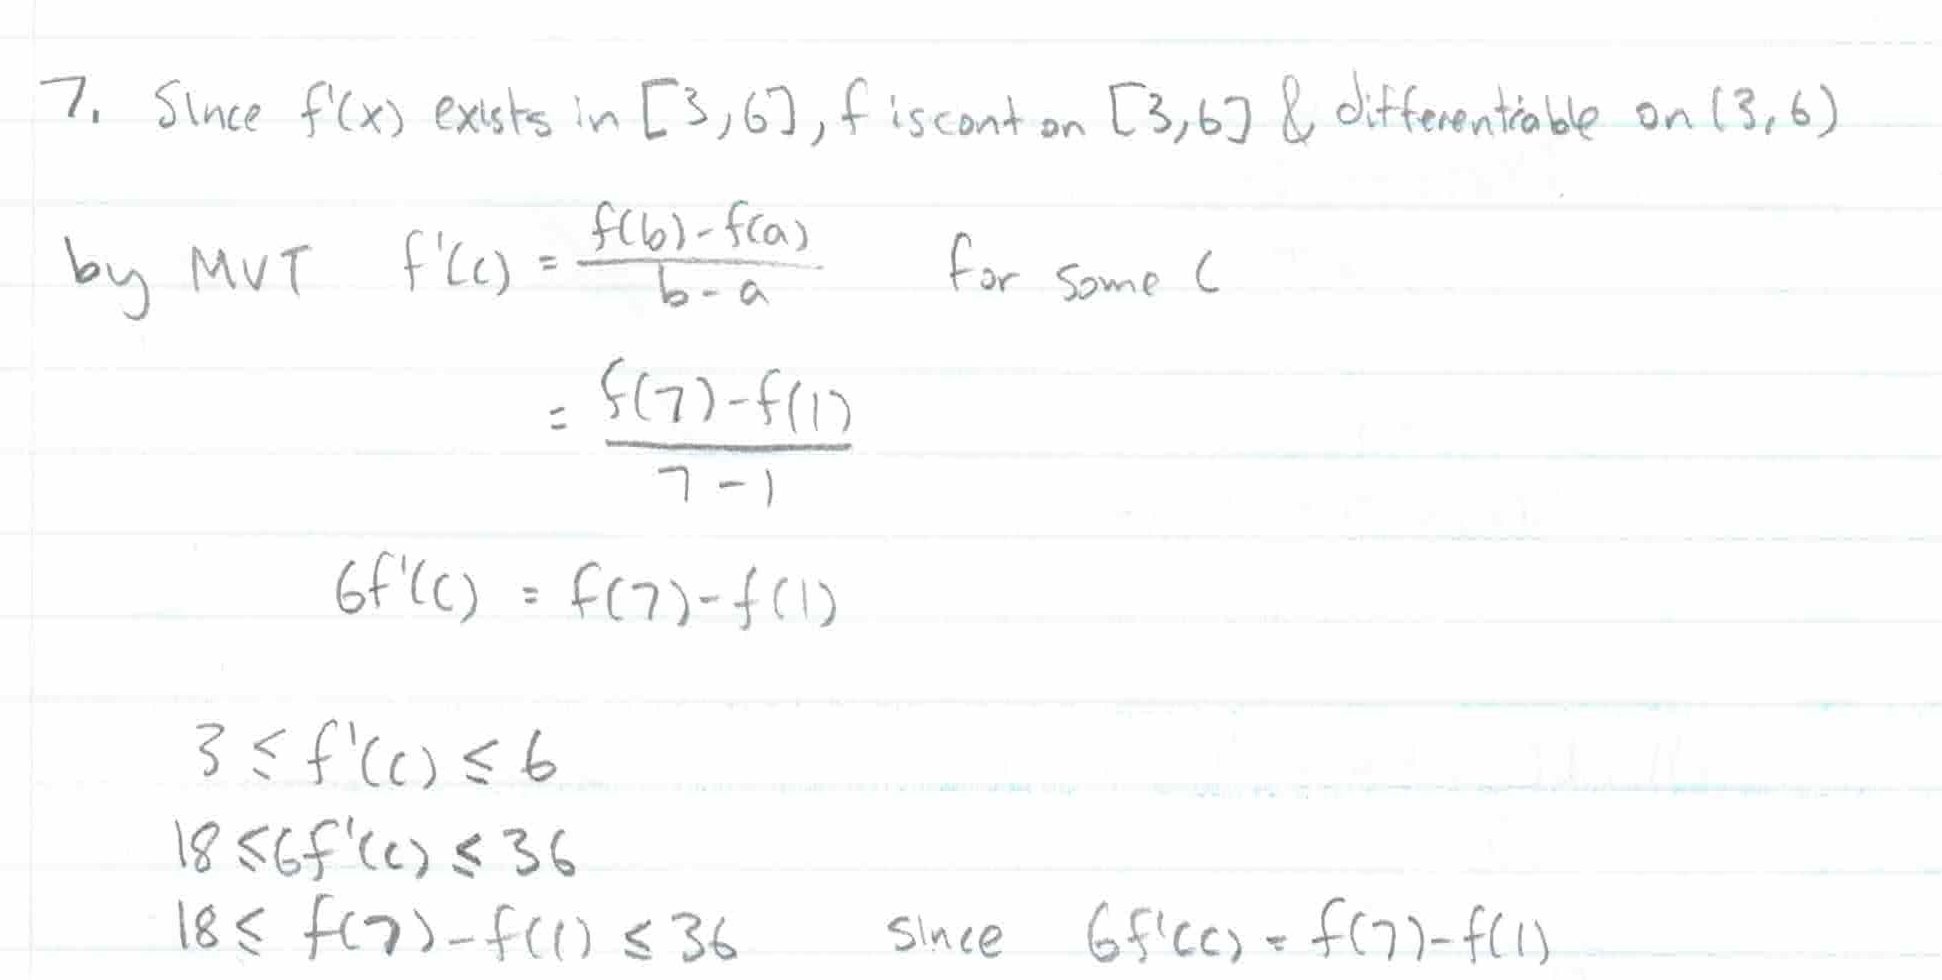 7. Since f'(x) exists in [3,6], f is cont on [3,6] & differentiable on (3,6)
by MVT f'(c) = \frac{f(b)-f(a)}{b-a} for some c
= \frac{f(7)-f(1)}{7-1}
6f'(c) = f(7)-f(1)
3 ≤ f'(c) ≤ 6
18 ≤ 6f'(c) ≤ 36
18 ≤ f(7)-f(1) ≤ 36 since 6f'(c) = f(7)-f(1)